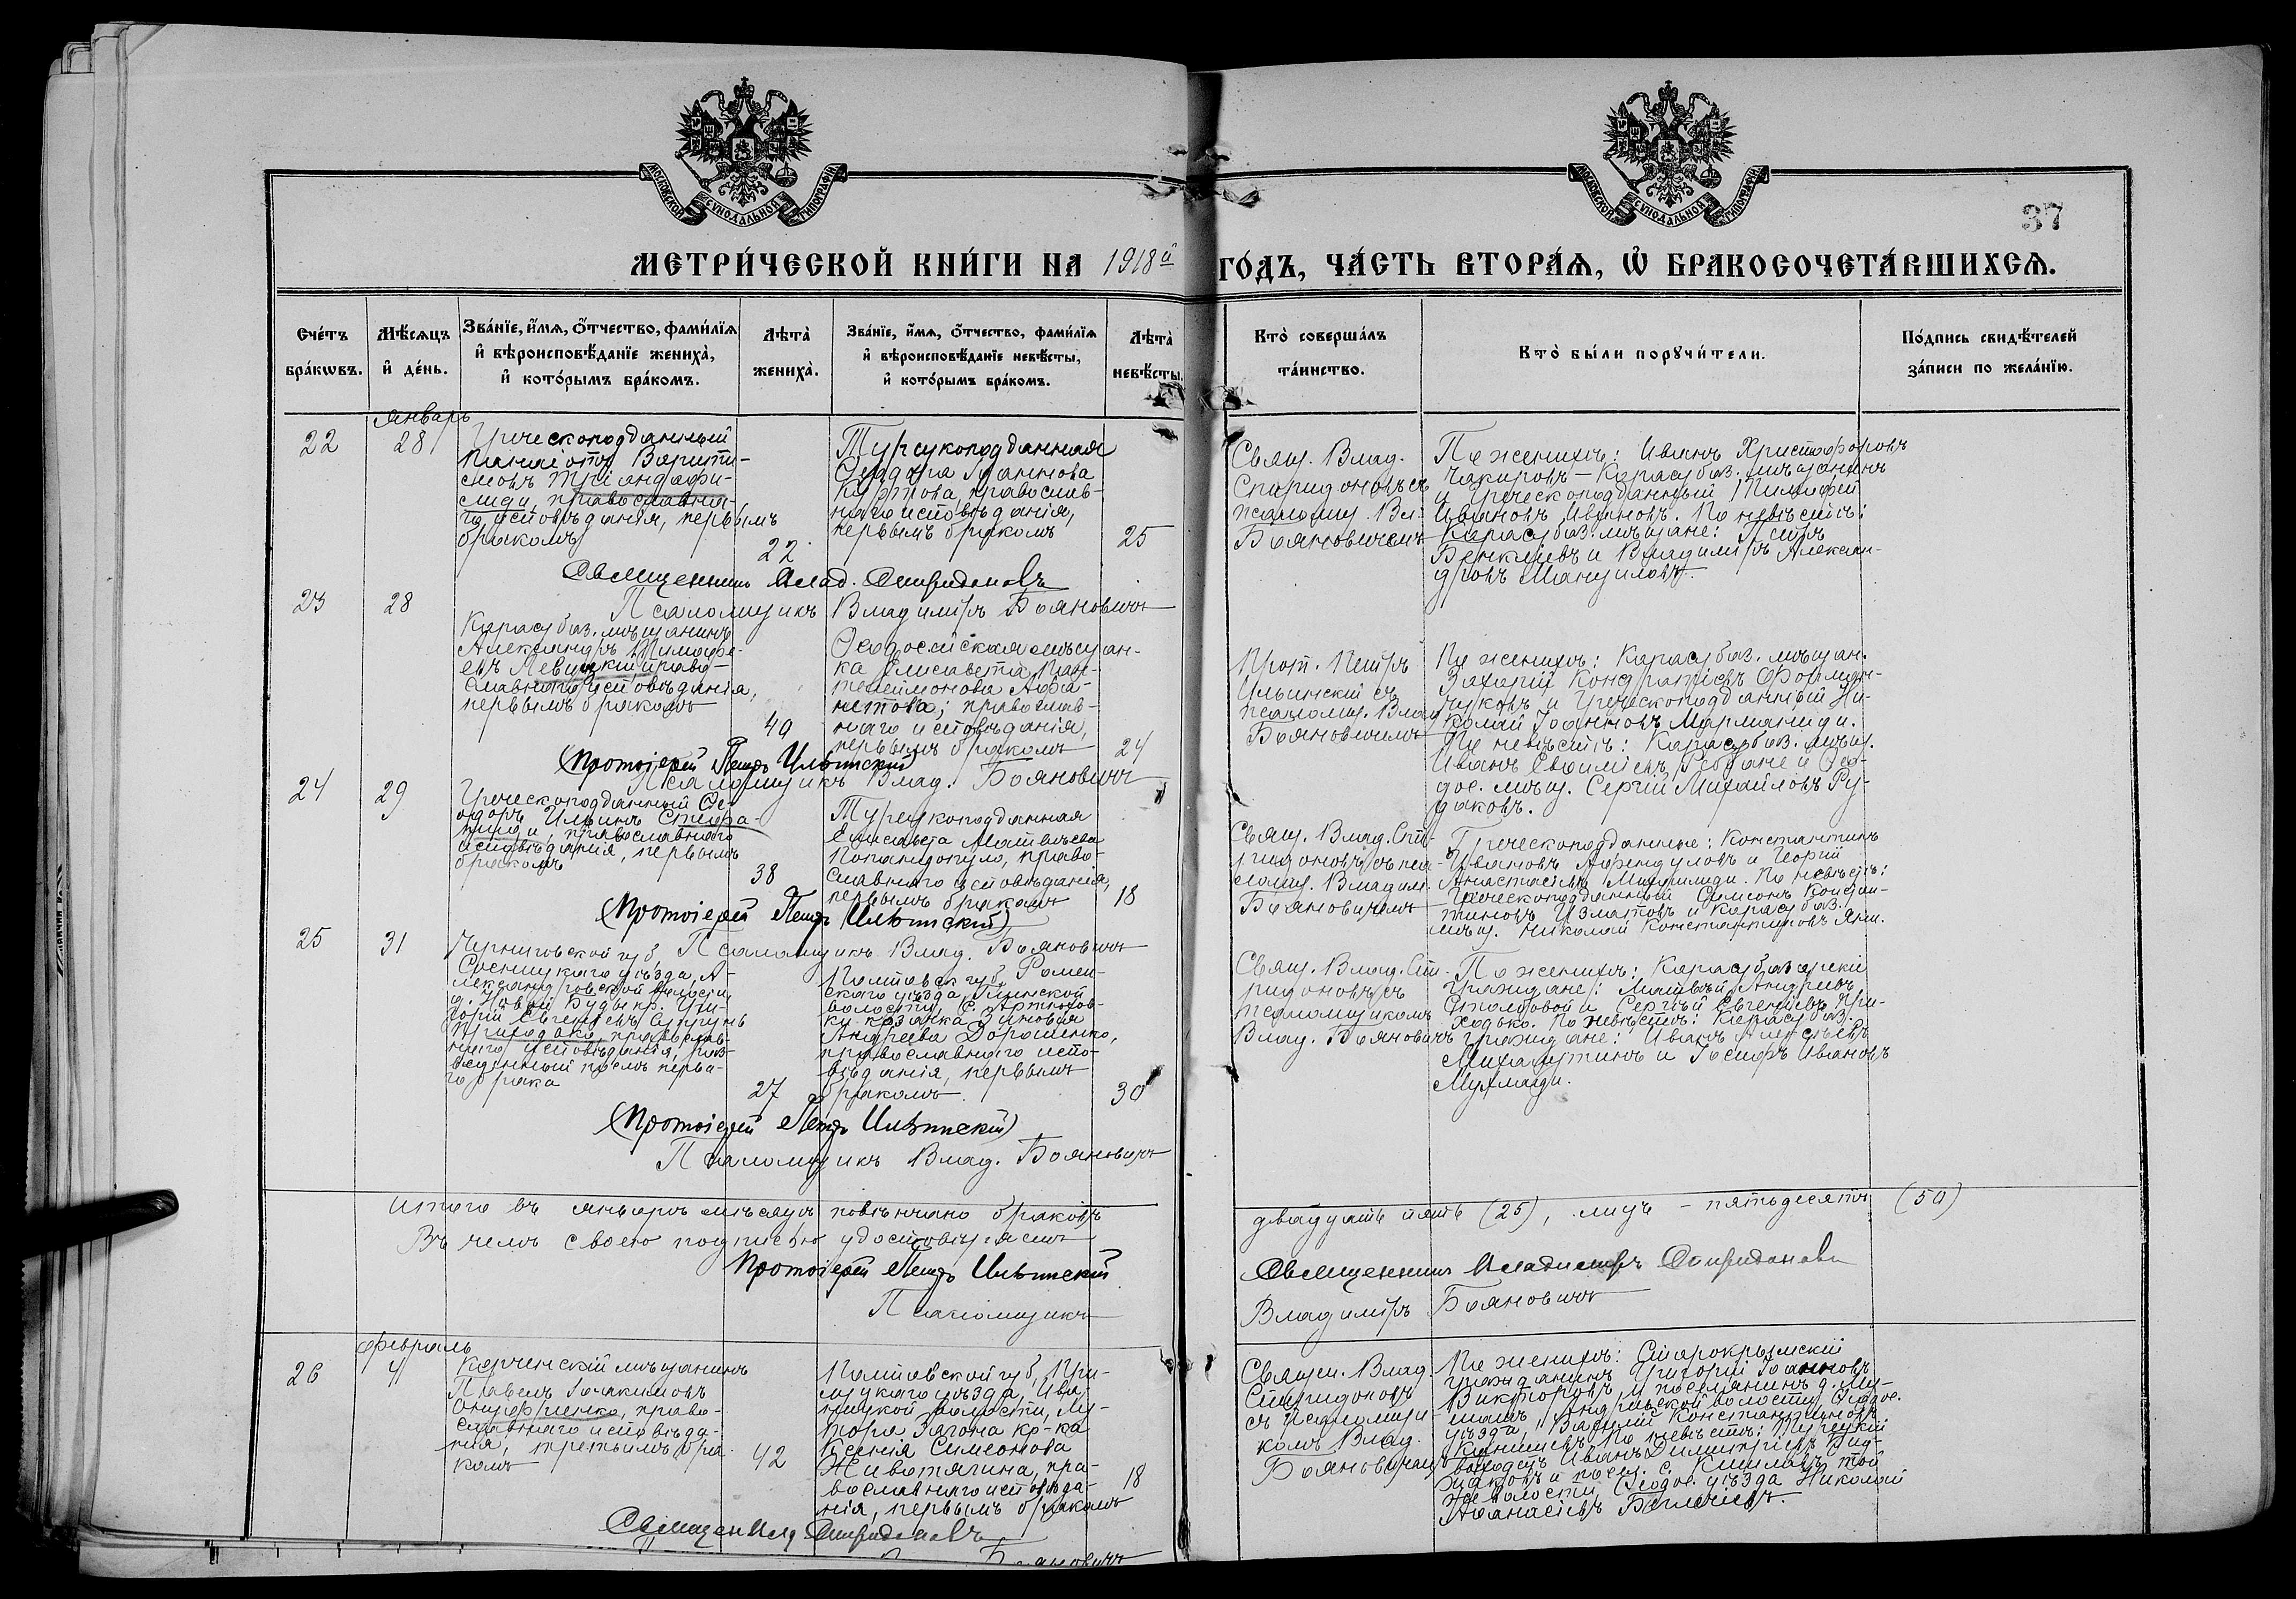 МОСКОВСКОЙ СѴНОДАЛЬНОЙ ТИПОГРАФІИ
МОСКОВСКОЙ СѴНОДАЛЬНОЙ ТИПОГРАФІИ
37
МЕТРИ́ЧЕСКОЙ КНИ́ГИ НА 1918й ГО́ДЪ, ЧА́СТЬ ВТОРА́Ѧ, Ѡ҆ БРАКОСОЧЕТА́ВШИХСѦ.
Сче́тъ бра́кѡвъ.
Мѣ́сѧцъ и҆ де́нь.
Зва́нїе, и҆́мѧ, ѻ҆́тчество, фами́лїѧ
и҆ вѣроисповѣ́данїе жениха̀,
и҆ кото́рымъ бра́комъ.
Лѣта̀ жениха̀.
Зва́нїе, и҆́мѧ, ѻ҆́тчество, фами́лїѧ
и҆ вѣроисповѣ́данїе невѣ́сты,
и҆ кото́рымъ бра́комъ.
Лѣта̀ невѣ́сты.
Кто̀ соверша́лъ
та́инство.
Кто̀ бы́ли порꙋчи́тели.
По́дпись свидѣ́телей
за́писи по жела́нїю.
Январь
22
28
Греческоподданный
Панаіотъ Варити-
мовъ Триандафи-
лиди, православна-
го исповѣданія, первымъ
бракомъ
22
Турецкоподданная
Ѳеодора Іоаннова
Куртова, православ-
наго исповѣданія,
первымъ бракомъ
25
Свящ. Влад.
Спиридоновъ съ
псаломщ. Вл.
Бояновичемъ
По женихѣ: Иванъ Христофоровъ
Чакировъ - Карасубаз. мѣщанинъ
и Греческоподданный Тимофей
Ивановъ Ивановъ. По невѣстѣ:
Карасубаз. мѣщане: Петръ
и Владиміръ Алексан-
дровъ Мануиловъ.
Священникъ Влад. Спиридоновъ
Псаломщикъ Владиміръ Бояновичъ
23
28
Карасубаз. мѣщанинъ
Александръ Тимофе-
евъ Левицкій, право-
славнаго исповѣданія,
первымъ бракомъ
40
Ѳеодосійская мѣщан-
ка Елисавета Пан-
телеймонова Афа-
нетова; православ-
наго исповѣданія,
первымъ бракомъ
24
Прот. Петръ
Ильинскій съ
псаломщ. Влад.
Бояновичемъ
По женихѣ: Карасубаз. мѣщан.
Захарій Кондратіевъ
и Греческоподданный Ни-
колай Іоанновъ Марманиди.
По невѣстѣ: Карасубаз. мѣщ.
Иванъ Евѳиміевъ и Ѳео-
дос. мѣщ. Сергій Михайловъ Ру-
даковъ.
Протоіерей Петръ Ильинскій
Псаломщикъ Влад. Бояновичъ
24
29
Греческоподданный Ѳе-
одоръ Ильинъ Стефа-
ниди, православнаго
исповѣданія, первымъ
бракомъ
38
Турецкоподданная
Елисавета Матвѣева
Попандопуло, право-
славнаго исповѣданія,
первымъ бракомъ
18
Свящ. Влад. Спи-
ридоновъ съ пса-
ломщ. Владим.
Бояновичемъ
Греческоподданные: Константинъ
Ивановъ Афендуловъ и Георгій
Анастасіевъ. По невѣстѣ:
Греческоподданный Симеонъ Констан-
тиновъ и Карасубаз.
мѣщ. Николай Константиновъ Яни.
Протоіерей Петръ Ильинскій
Псаломщикъ Влад. Бояновичъ
25
31
Черниговской губ.,
Сосницкаго уѣзда, А-
лександровской волости
д. Новой Буды кр. Гри-
горій Евгеніевъ
Приходько, православ-
наго исповѣданія, раз-
веденный послѣ перва-
го брака
27
Полтавск. губ. Ромен-
скаго уѣзда, Глинской
волости, с. Артюхов-
ки козачка Зиновія
Андреева Дорошенко,
православнаго испо-
вѣданія, первымъ
бракомъ.
30
Свящ. Влад. Спи-
ридоновъ съ
псаломщикомъ
Влад. Бояновичъ
По женихѣ: Карасубазарскіе
граждане: Матвѣй Андреевъ
Столбовой и Сергѣй Евгеніевъ При-
ходько. По невѣстѣ: Карасубаз.
граждане: Иванъ Алексѣевъ
Михалутинъ и Іосифъ Ивановъ
Протоіерей Петръ Ильинскій
Псаломщикъ Влад. Бояновичъ
Итого въ январѣ мѣсяцѣ повѣнчано браковъ двадцать пять (25), лицъ - пятьдесятъ (50)
Въ чемъ своею подписью удостовѣряемъ
Протоіерей Петръ Ильинскій
Священникъ Владиміръ Спиридоновъ
Псаломщикъ Владиміръ Бояновичъ
Февраль
26
4
Керченскій мѣщанинъ
Павелъ Іоакимовъ
Онуфріенко, право-
славнаго исповѣда-
нія, третьимъ бра-
комъ
42
Полтавской губ., При-
луцкаго уѣзда, Ива-
ницкой волости, Ху-
тора Загона кр-ка
Ксенія Симеонова
Животягина, пра-
вославнаго исповѣда-
нія, первымъ бракомъ
18
Священ. Влад.
Спиридоновъ
съ псаломщи-
комъ Влад.
Бояновичемъ
По женихѣ: Старокрымскій
гражданинъ Григорій Іоанновъ
Викторовъ и поселянинъ д. Му-
волости, Ѳеодос.
уѣзда, Василій Константиновъ
По невѣстѣ: Турецкій
Иванъ Димитріевъ
и посел. с. той
же волости, Ѳеодос. уѣзда Николай
Аѳанасіевъ
Священ. Влад. Спиридоновъ
Бояновичъ